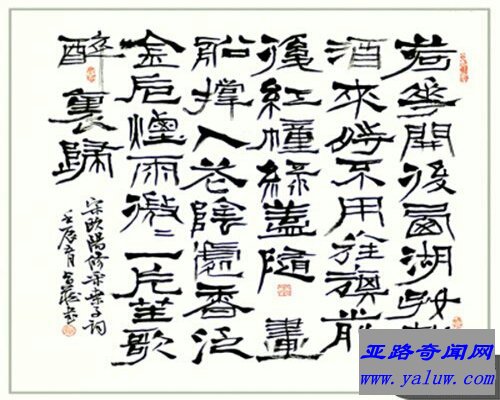 荷花開後西湖好載
酒來時不用旌旗前
後紅幢緑盖隨畫
船撑入花陰處香泛
金卮煙雨微微一片笙歌
醉裏歸
宋歐陽修采桑子詞
壬辰
亚路奇闻网
www.yaluw.com